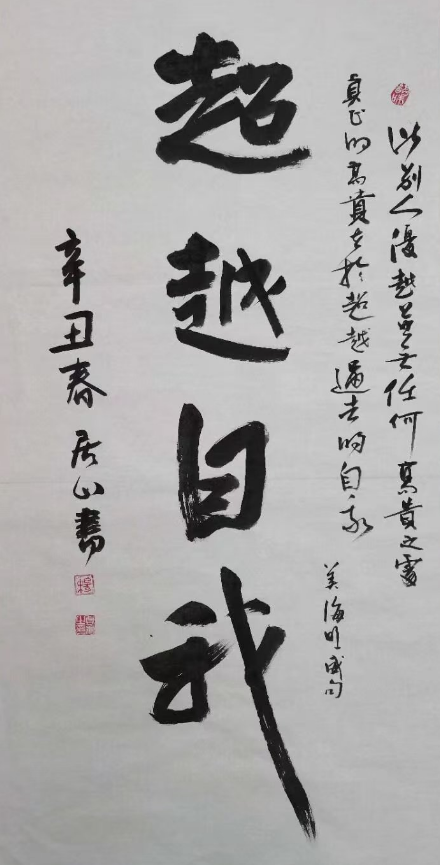 比别人優越並无任何高貴之處
真正的高貴在於超越過去的自我
美海明威句
超越自我
辛丑春居山書